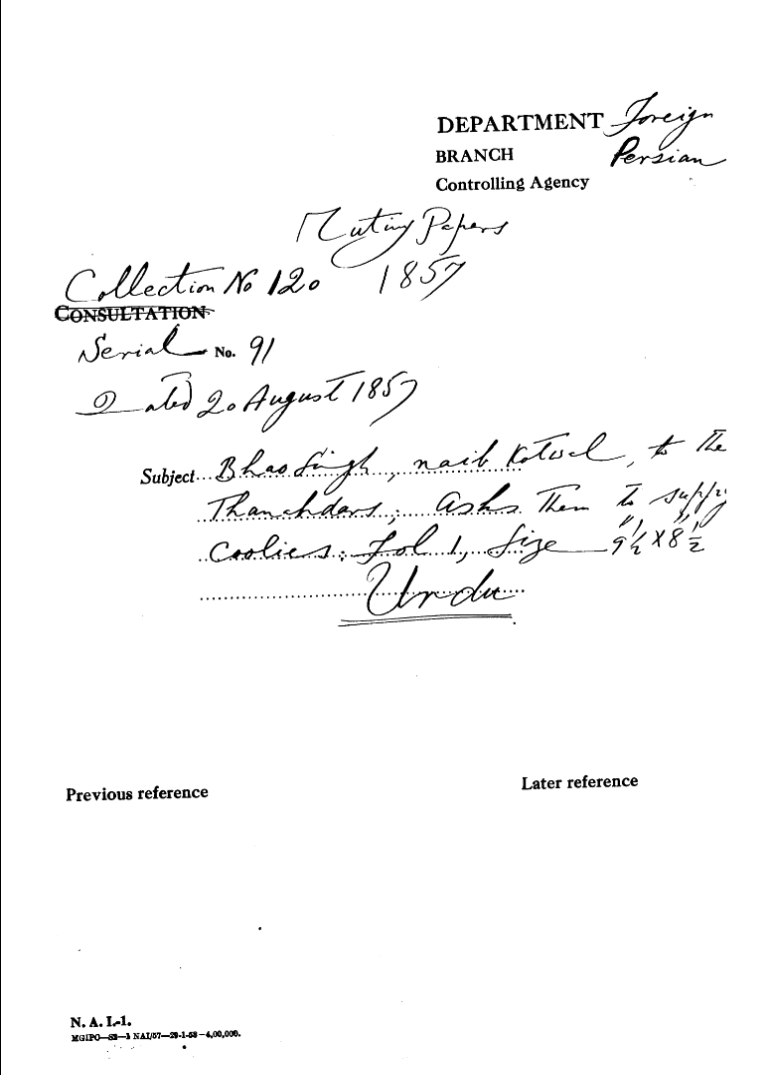 DEPARTMENT Foreign
BRANCH Persian
Controlling Agency
Mutiny Papers
Collection No 120 1857
CONSULTATION
Serial No. 91
Dated 20 August 1857
Subject Bhao Singh, naib Kotwal, to the
Thanahdars; asks them to supply
Coolies; Fol 1, Size 9½" X 8½"
Urdu
Previous reference
Later reference
N. A. I.-1.
MGIPC—S3—1 NAI/57—29-1-58—4,00,000.